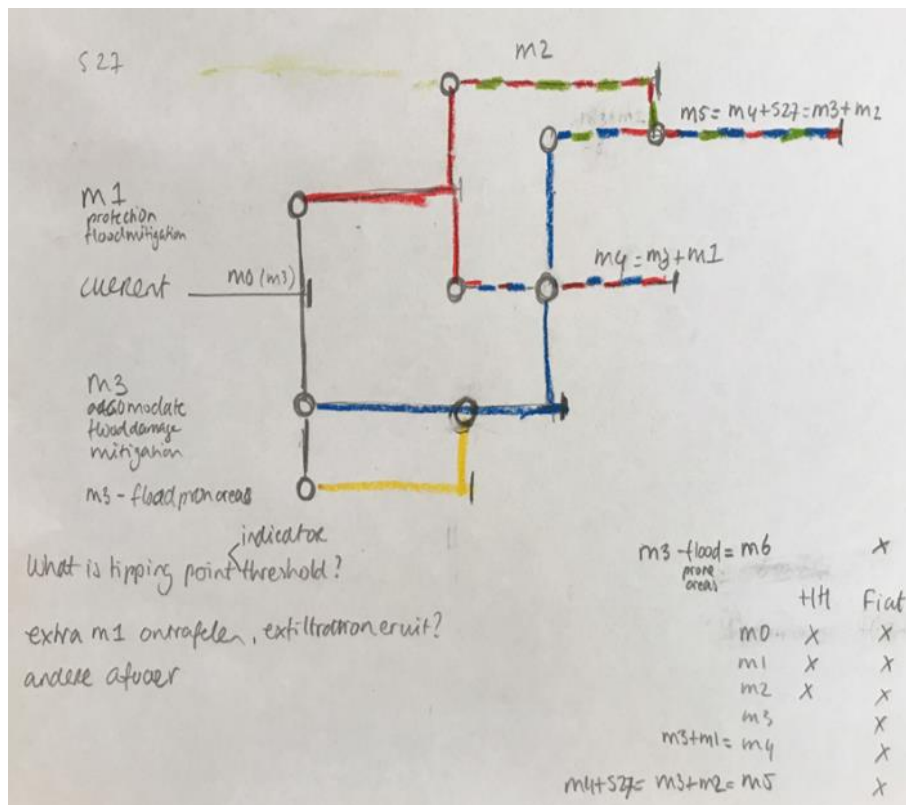 S27
m2
m5 = m4+S27 = m3+m2
m1
protection
floodmitigation
m4 = m3+m1
current
m0 (m3)
m3
accomodate
flooddamage
mitigation
m3 - flood pron areas
indicator
What is tipping point threshold?
extra m1 ontrafelen, exfiltration eruit?
andere afvoer
m3 - flood = m6 x
prone
areas
HH Fiat
m0 x x
m1 x x
m2 x x
m3 x
m3+m1 = m4 x
m4+S27 = m3+m2 = m5 x